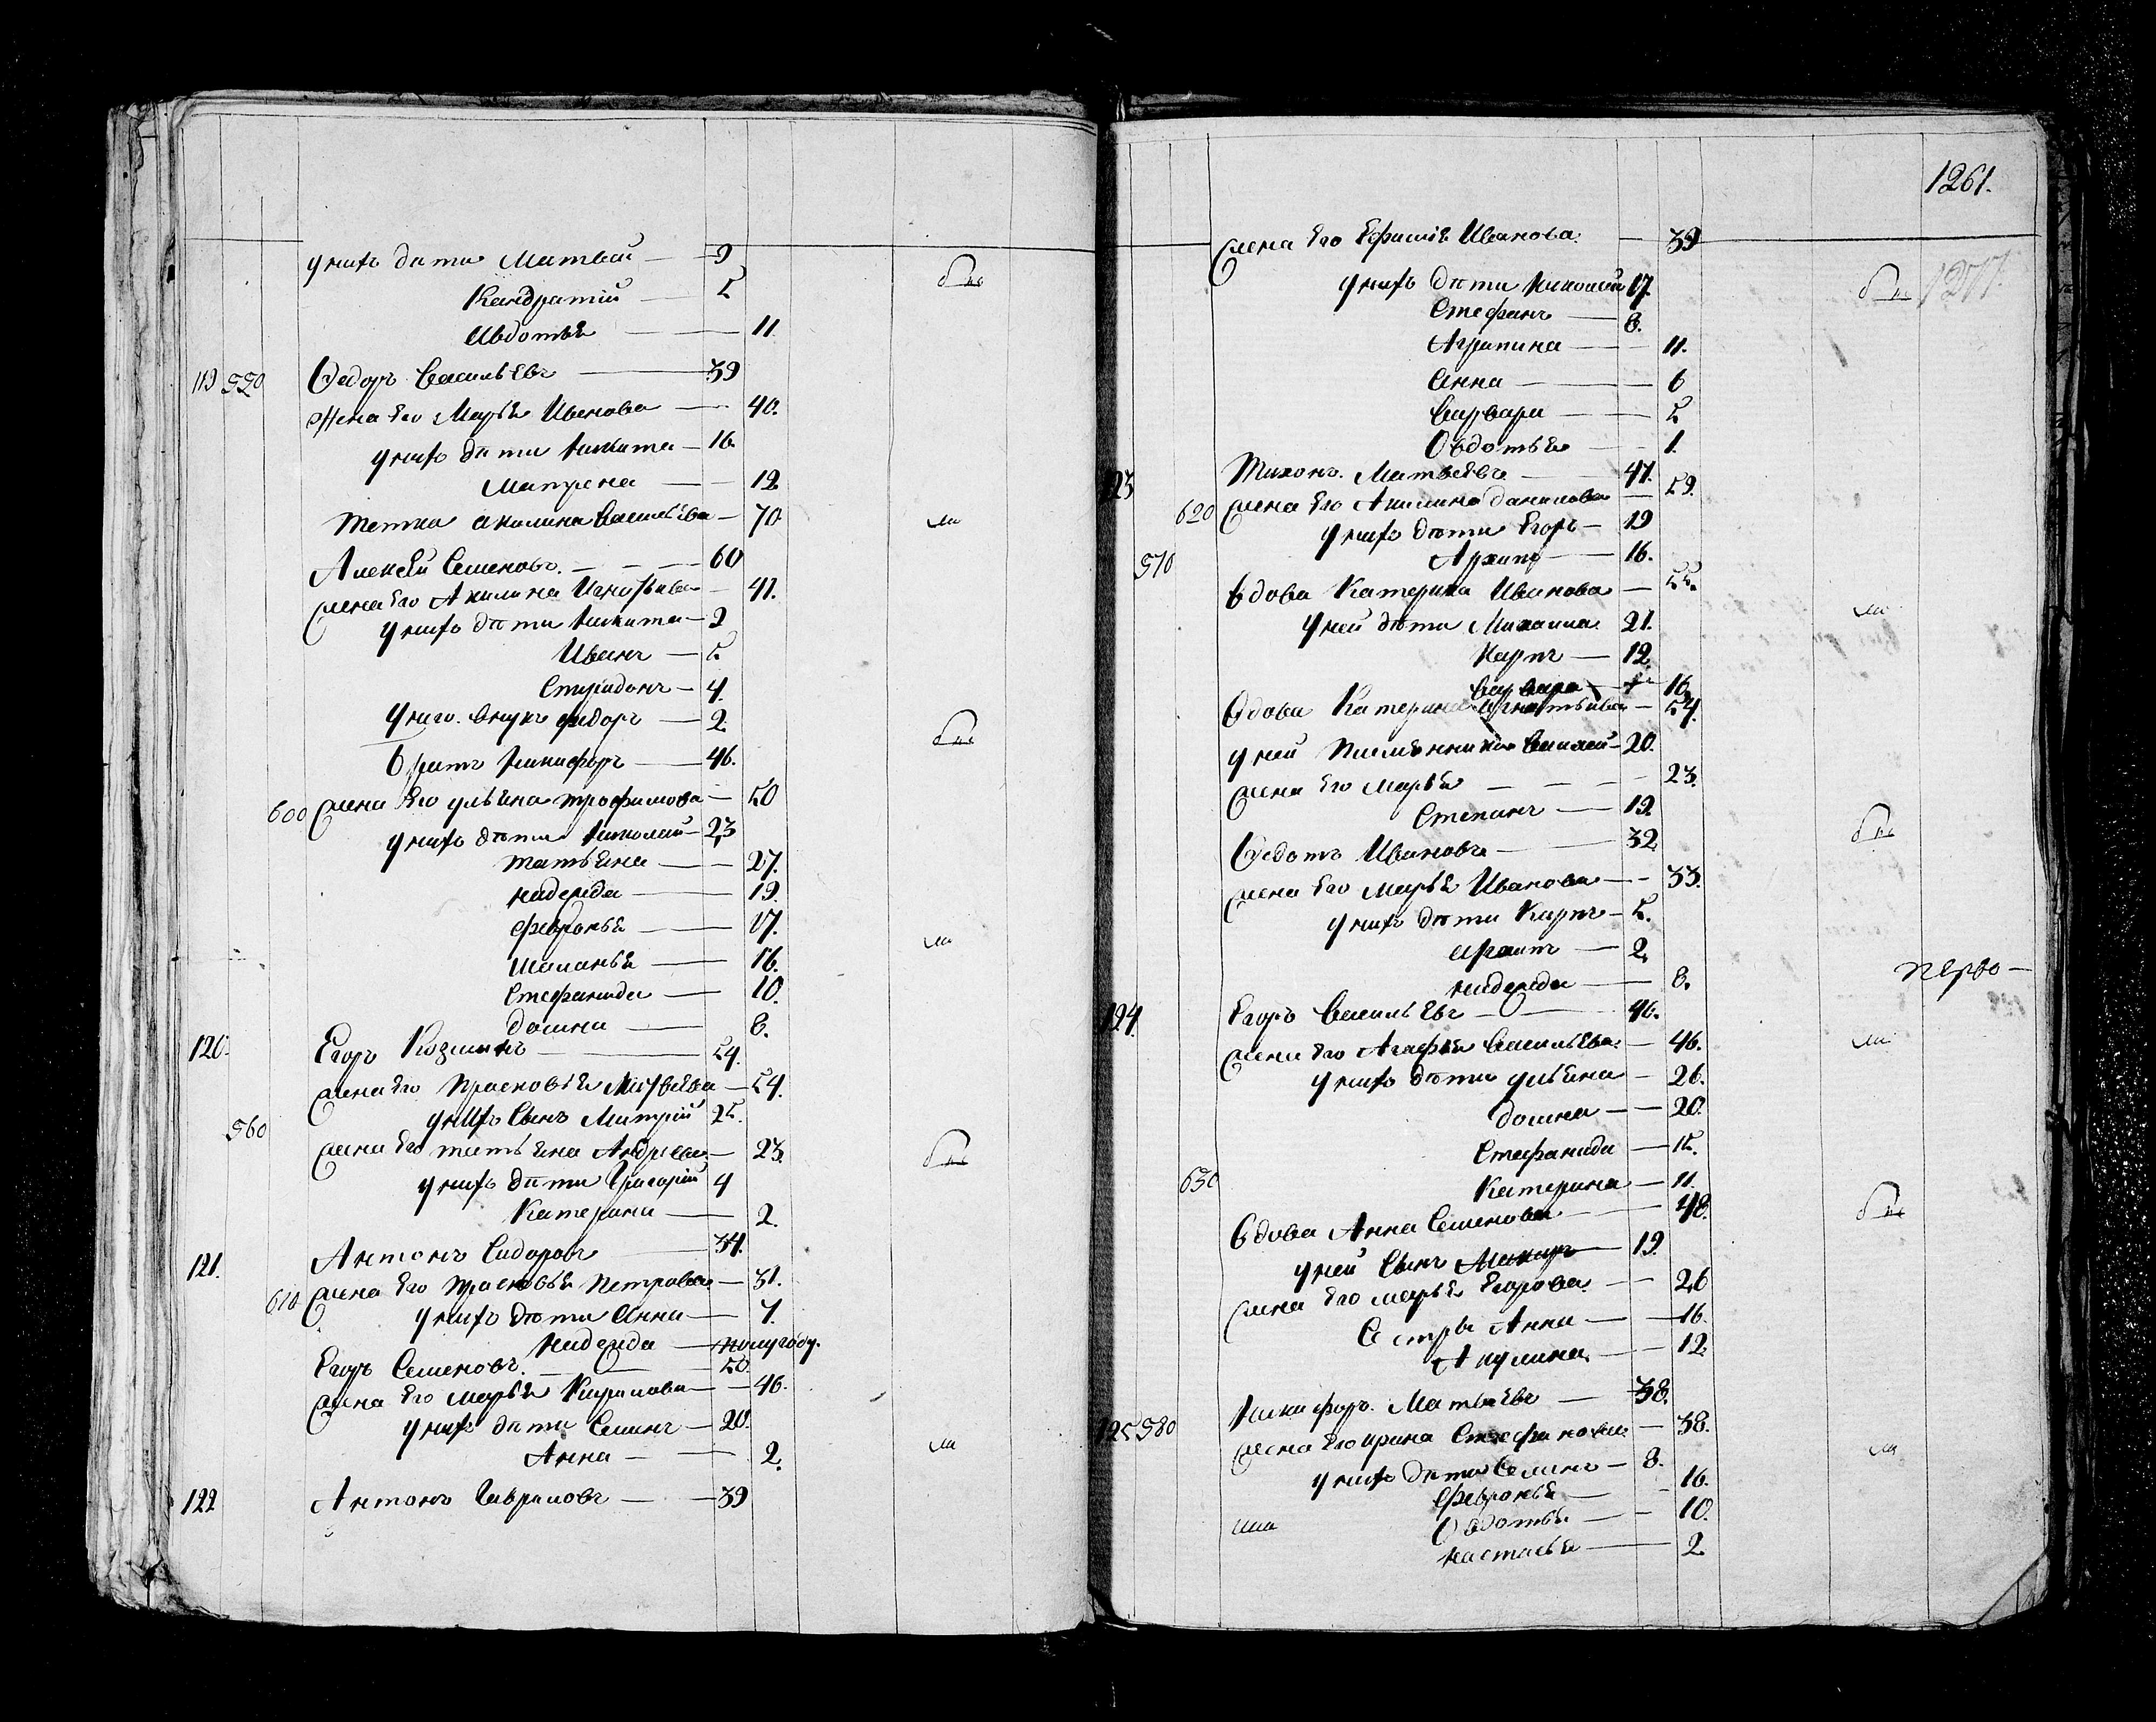 у нихъ дѣти Матвѣй — 9
Кандратий — 5
Авдотья — 11
119 550 Федоръ Васильевъ — 39
Жена Его Марья Иванова — 40.
у нихъ дѣти Никита — 16
Матрена — 12
тетка акилина Васильева — 70
Алексѣй Семеновъ. — 60
Жена Его Акилина Игнатьева — 41.
у нихъ дѣти Никита — 2
Иванъ — 5.
Спиридонъ — 4.
У него внукъ федоръ — 2.
братъ Никифоръ — 46.
600 Жена Его ульяна трофимова — 50
у нихъ дѣти Николай — 23
татьяна — 27.
надежда — 19.
февронья — 17.
Маланья — 16.
Стефанида — 10.
домна — 8.
120. Егоръ Козминъ — 54.
Жена Его Прасковья Матвѣева — 54.
у нихъ Сынъ Митрий 25.
560
Жена Его татьяна Андрѣева — 23.
у нихъ дѣти Григорий 4
Катерина — 2.
121. Антонъ Сидоровъ — 34.
610 Жена Его Прасковья Петрова — 31.
у нихъ дѣти Анна — 7.
надежда — полугоду.
Егоръ Семеновъ. — 50.
Жена Его Марья Кирилова — 46.
у нихъ дѣти Семинъ — 20.
Анна — 2.
122 Антонъ Гавриловъ — 39
1261.
Жена Его Ефимия Иванова. — 39
у нихъ дѣти Николай 17.
Стефанъ — 8.
Агрипина — 11.
Анна — 6
Варвара — 5
Овдотья — 1.
123 Тихонъ. Матвѣевъ — 47.
620 Жена Его Акилина данилова — 59.
у нихъ дѣти Егоръ — 19
570 Архипъ — 16.
вдова Катерина Иванова — 55.
У ней дѣти Михаила 21.
Карпъ — 12
Варвара — 16
Вдова Катерина Игнатьива — 54.
у ней племянники Василей — 20.
Жена Его Марья — 23.
Степанъ — 19.
Федотъ Ивановъ — 32
Жена Его Марья Иванова — 33.
у нихъ дѣти Карпъ — 5.
2,
надежда — 8.
перво —
124. Егоръ Васильевъ — 46.
Жена Его Агафья Васильева — 46.
у нихъ дѣти ульяна — 26.
домна — 20.
Стефанида — 15.
630 Катерина — 11.
вдова Анна Семенова — 48.
у ней Сынъ Макаръ — 19.
Жена Его марья Егорова — 26
Сестры Анна — 16.
Акулина — 12.
Никифоръ. Матвѣевъ — 38.
125 580 Жена Его ирина Стефанова — 38.
у нихъ дѣти Семинъ — 8.
февронья — 16.
Овдотья — 10.
настасья — 2.